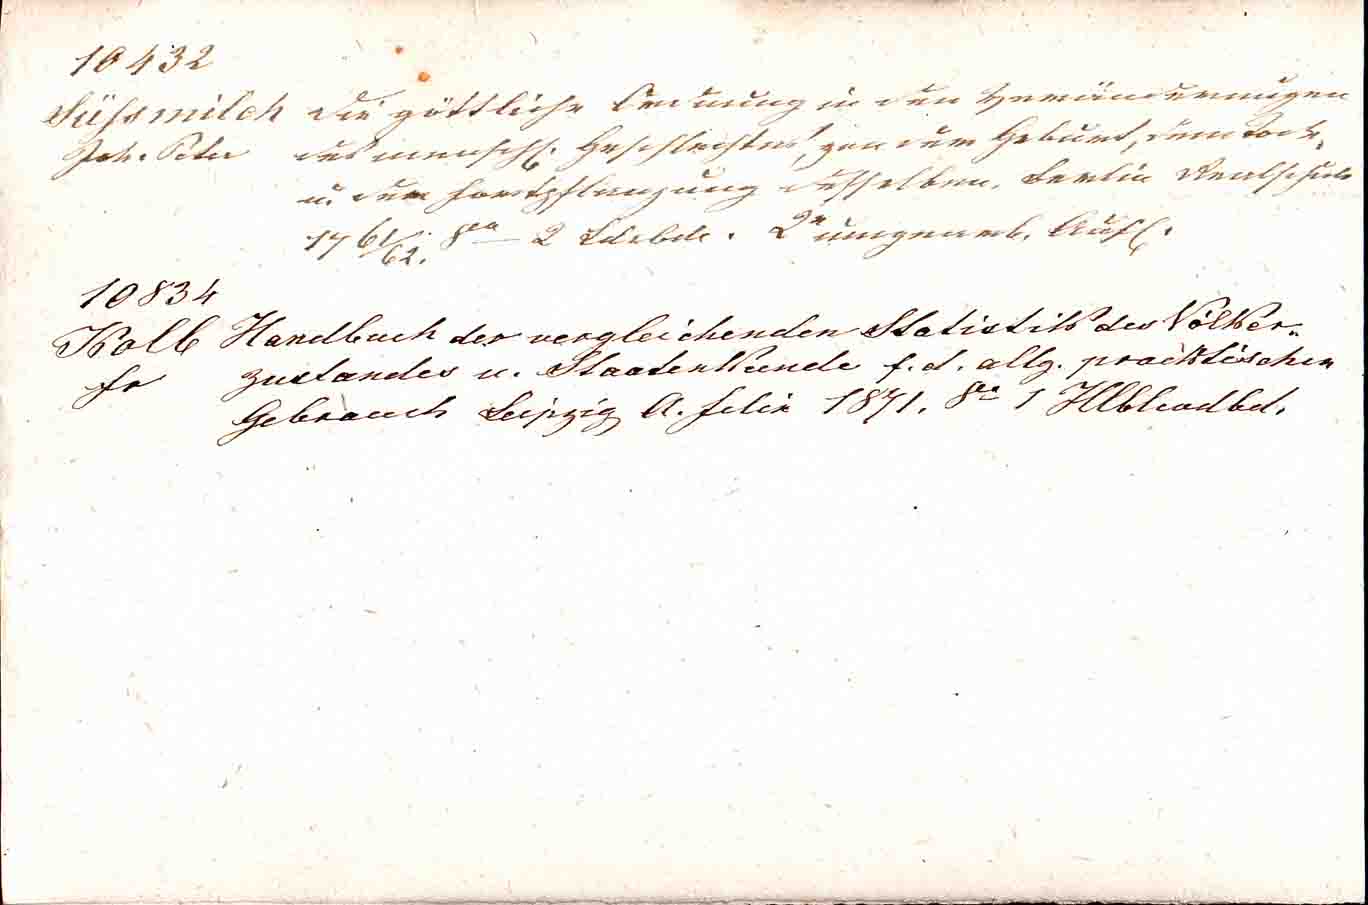 10432
Süssmilch die göttliche Ordnung in den Veränderungen
Joh. Peter des menschl. Geschlechtes, von der Geburt, dem Tode,
u. der Fortpflanzung desselben. Berlin Realschule
1761/62. 8va 2 Ldrbde. 2te umgearb. Aufl.
10834
Kolb Handbuch der vergleichenden Statistik des Völker-
Fr zustandes u. Staatenkunde f. d. allg. praktischen
Gebrauch Leipzig A. Felix 1871. 8va 1 Hlblwdbd.